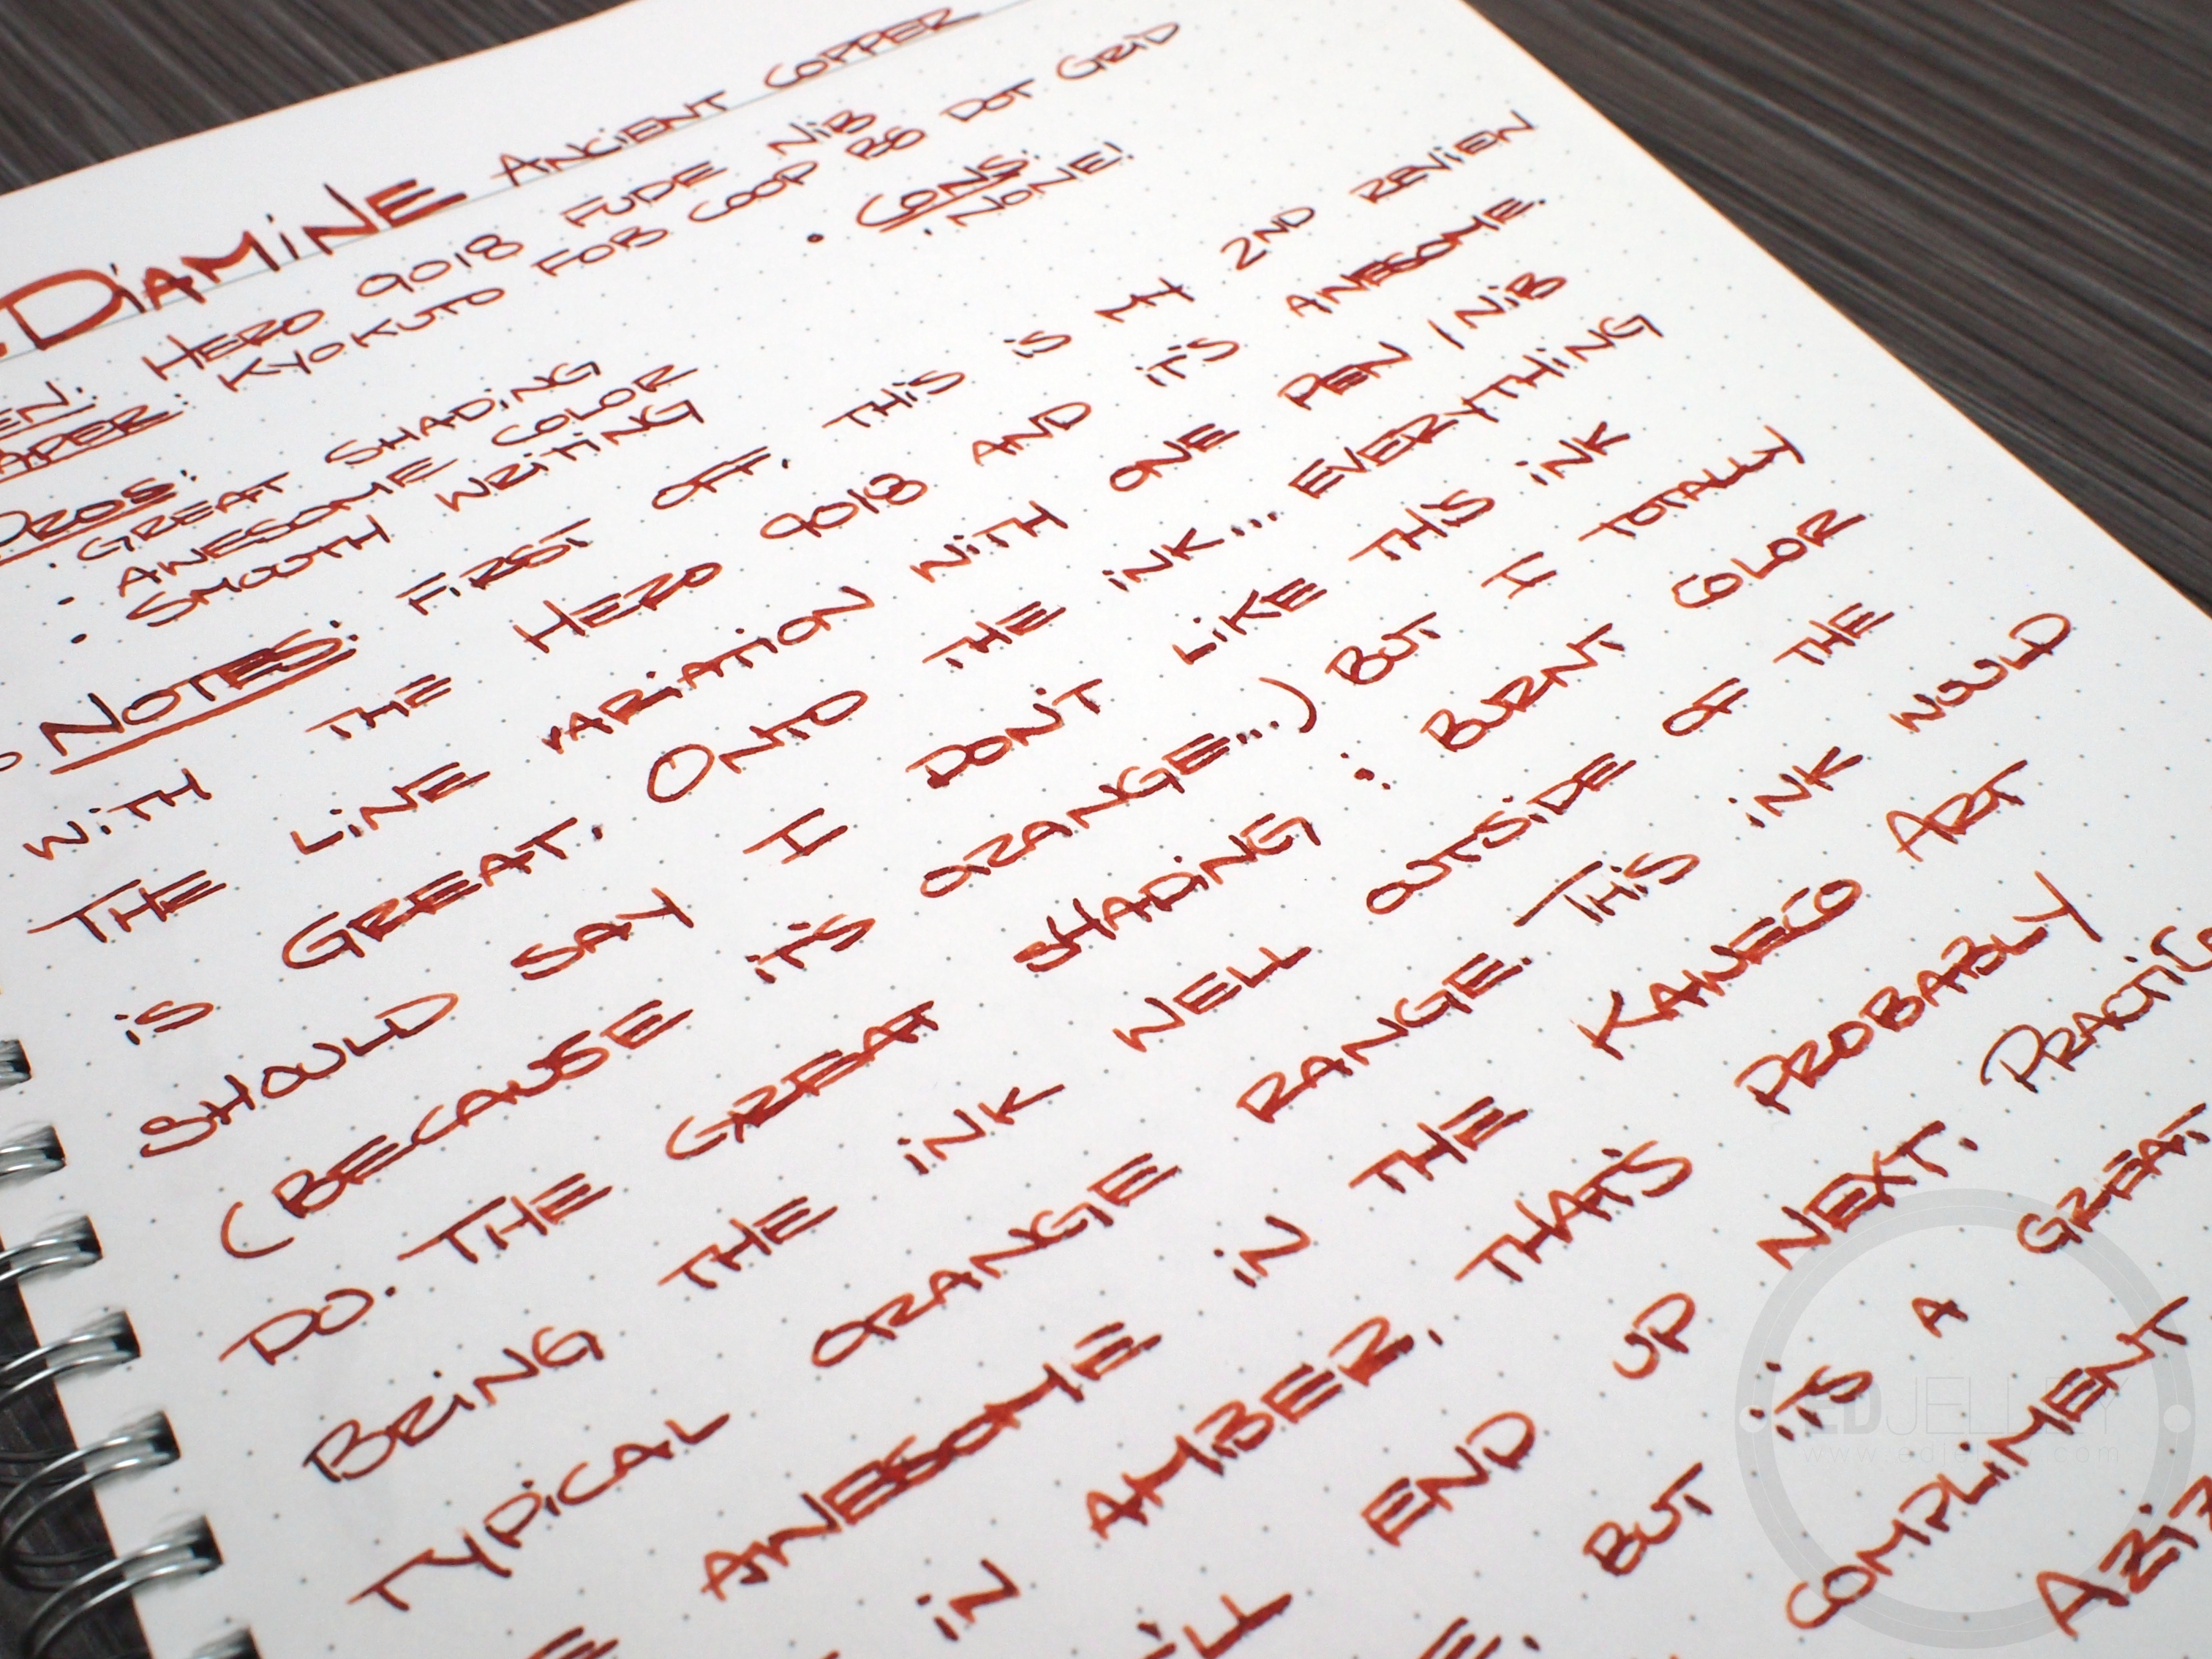 DiAMiNE ANCiENT COPPER
EN: HERO 9018 FUDE NiB
APER: KYOKUTO FOB COOP B5 DOT GRiD
PROS:
• GREAT SHADiNG
• AWESOME COLOR
• SMOOTH WRiTiNG
• CONS:
• NONE!
NOTES: FiRST OFF, THiS iS MY 2ND REViEW
WiTH THE HERO 9018 AND iT'S AWESOME.
THE LiNE VARiATiON WiTH ONE PEN / NiB
iS GREAT. ONTO THE iNK... EVERYTHiNG
SHOULD SAY I DON'T LiKE THiS iNK
(BECAUSE iT'S ORANGE...) BUT I TOTALLY
DO. THE GREAT SHADiNG : BURNT COLOR
BRiNG THE iNK WELL OUTSiDE OF THE
TYPiCAL ORANGE RANGE. THiS iNK WOULD
AWESOME iN THE KAWECO ART
iN AMBER, THAT'S PROBABLY
END UP NEXT. PRACTiC
BUT iS A GREAT
COMPLiMENT
EDJELLEY